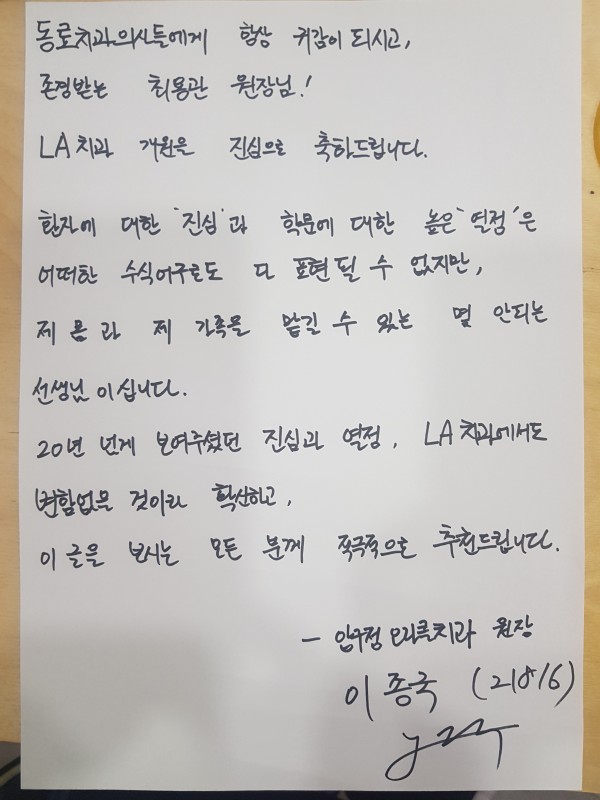 동료치과의사들에게 항상 귀감이 되시고,
존경받는 최용관 원장님!
LA치과 개원을 진심으로 축하드립니다.
환자에 대한 '진심'과 학문에 대한 높은 '열정'은
어떠한 수식어구로도 다 표현될 수 없지만,
제 몸과 제 가족을 맡길 수 있는 몇 안되는
선생님이십니다.
20년 넘게 보여주셨던 진심과 열정, LA치과에서도
변함없을 것이라 확신하고,
이 글을 보시는 모든 분께 적극적으로 추천드립니다.
- 압구정 오리콤치과 원장
이종국 (21816)